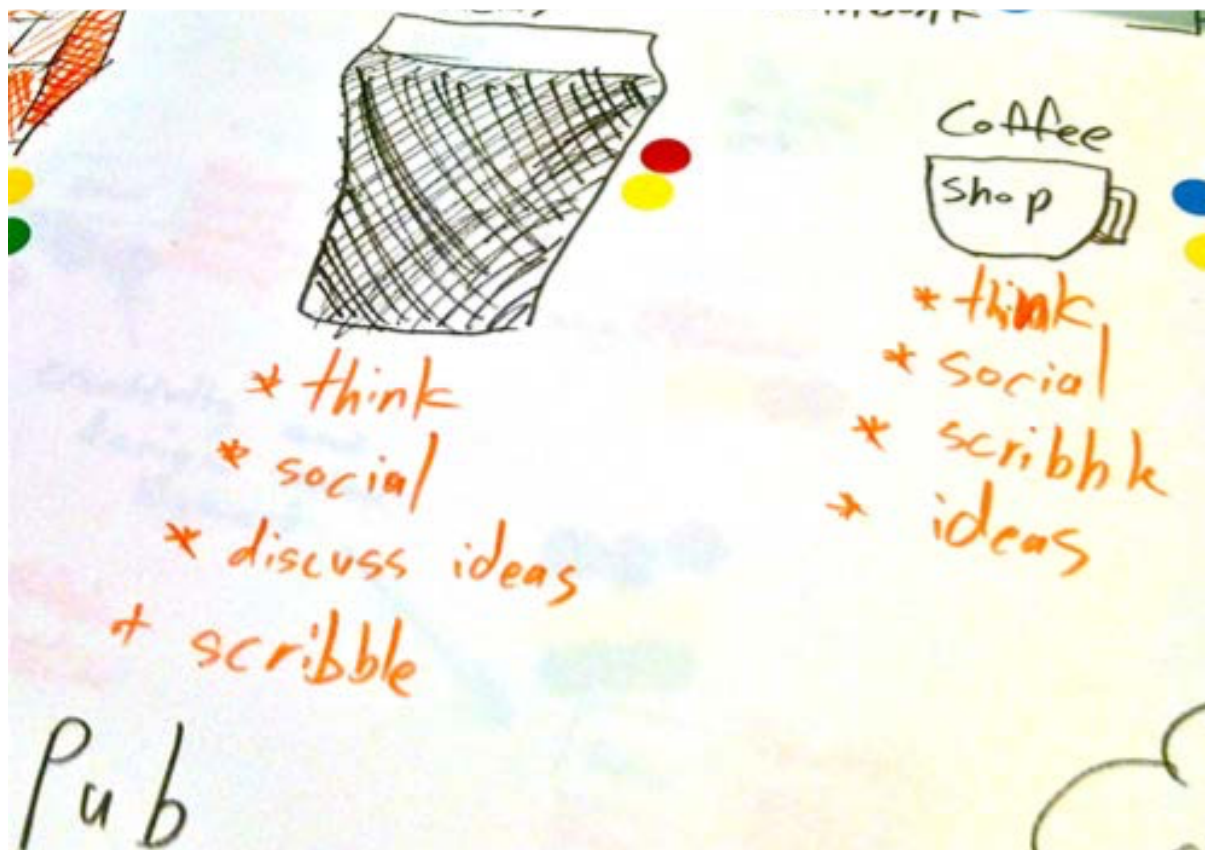 Coffee
shop
* think
* social
* scribble
* ideas
* think
* social
* discuss ideas
+ scribble
Pub